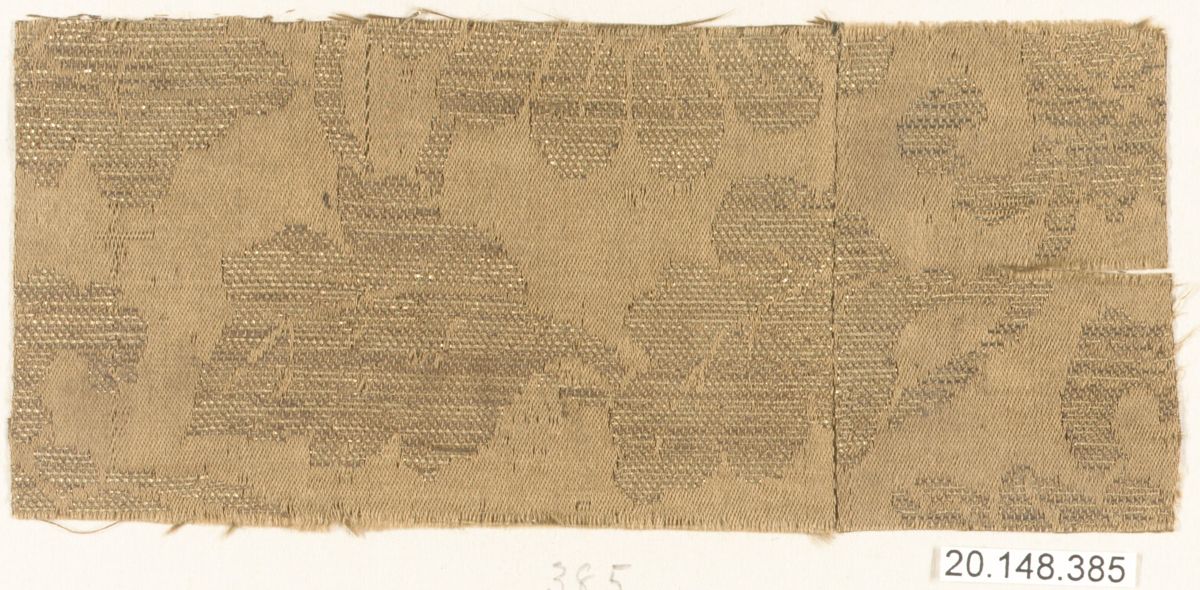 385
20.148.385